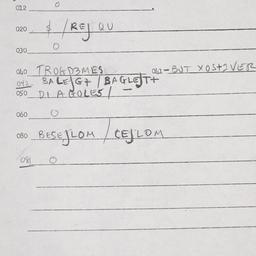 012 0
020 $ /REJ QU
030 0
040 TROHD3MES 061-BUT XOS+2VER
042 BALEJG+ /BAGLEJT+
050 DIAGOLES/
060 0
080 BESEJLOM /CEJLOM
081 0